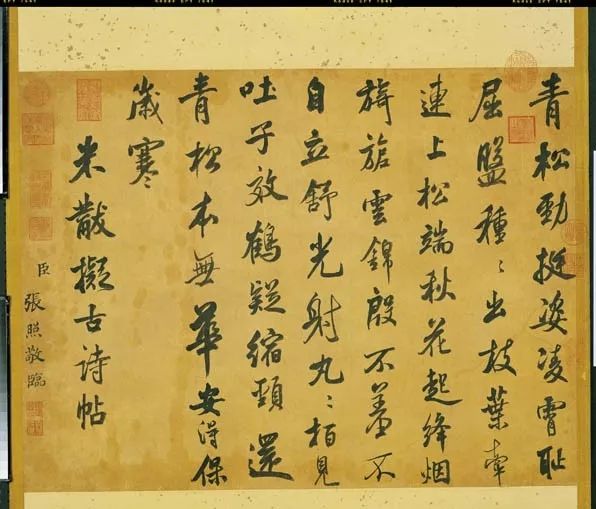 青松勁挺姿凌霄耻
屈盤種〻出枝葉牽
連上松端秋花起絳烟
旖旎雲錦殷不羞不
自立舒光射丸〻栢見
吐子效鶴疑縮頸還
青松本無華安得保
歲寒
米黻擬古詩帖
臣張照敬臨